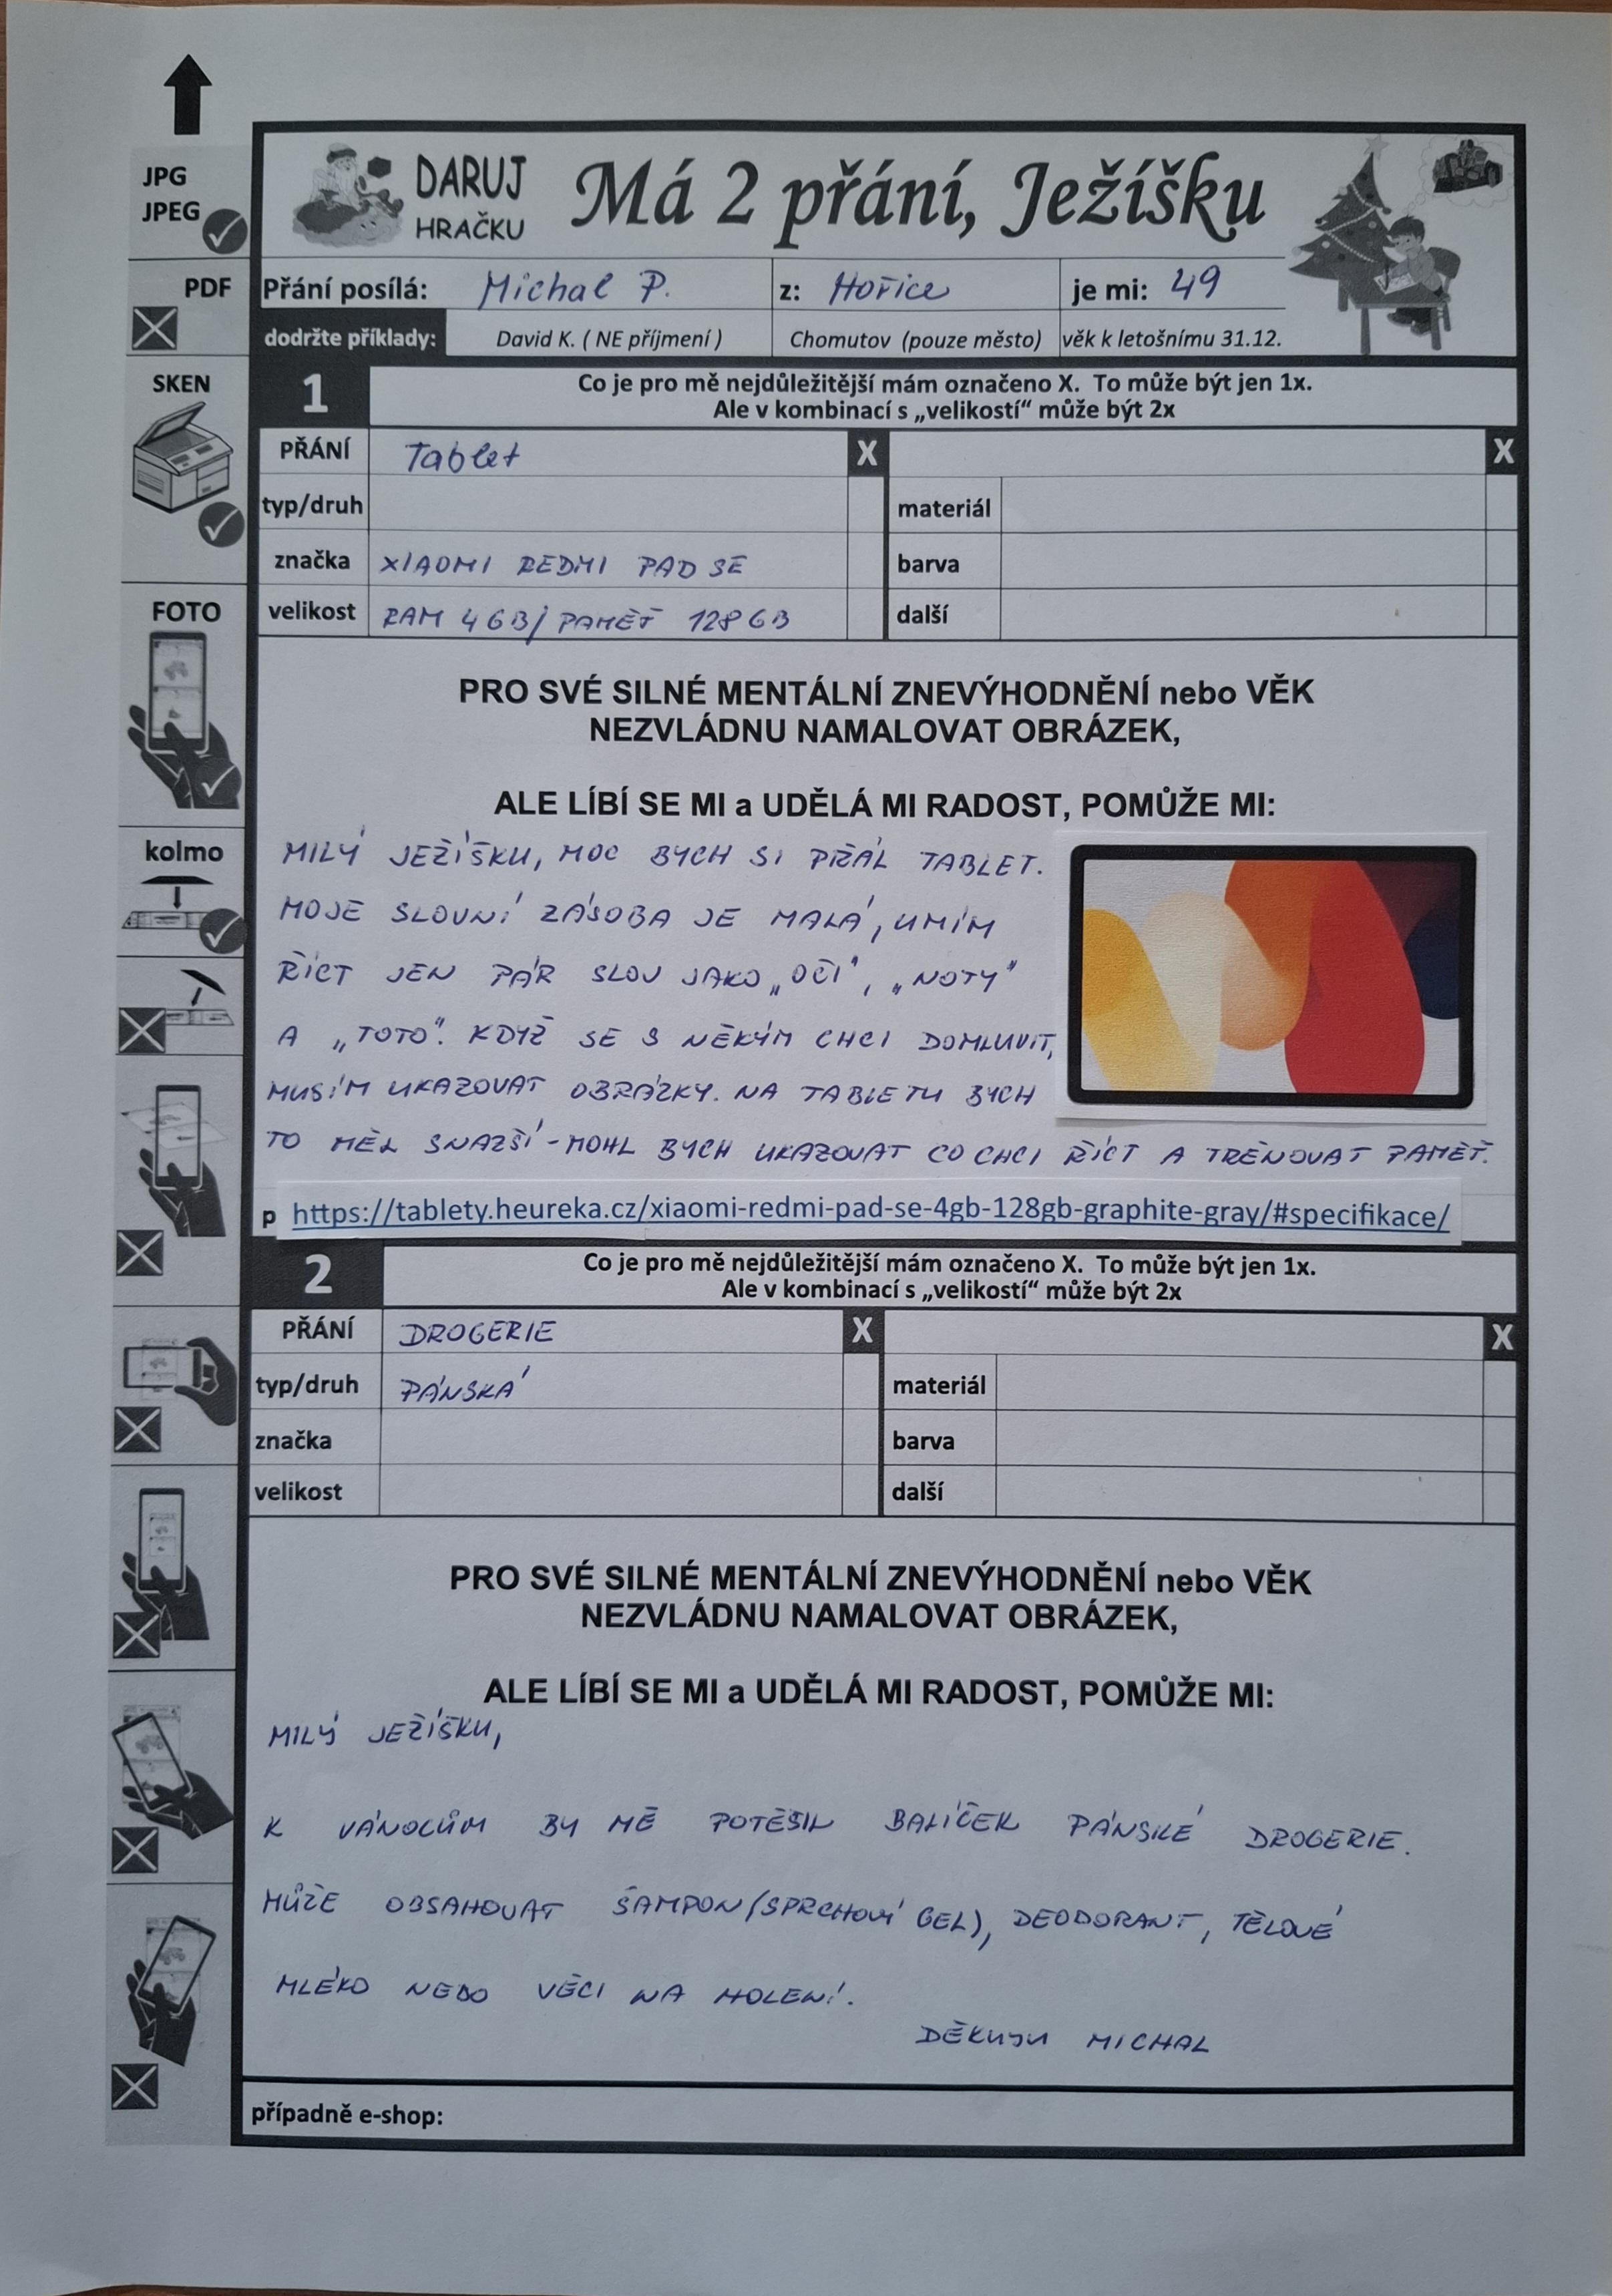 JPG
JPEG
PDF
SKEN
FOTO
kolmo
DARUJ
HRAČKU
Má 2 přání, Ježíšku
Přání posílá: Michal P. z: Hořice je mi: 49
dodržte příklady: David K. ( NE příjmení ) Chomutov (pouze město) věk k letošnímu 31.12.
1 Co je pro mě nejdůležitější mám označeno X. To může být jen 1x.
Ale v kombinací s „velikostí“ může být 2x
PŘÁNÍ Tablet X X
typ/druh materiál
značka XIAOMI REDMI PAD SE barva
velikost RAM 4GB/PAMĚŤ 128GB další
PRO SVÉ SILNÉ MENTÁLNÍ ZNEVÝHODNĚNÍ nebo VĚK
NEZVLÁDNU NAMALOVAT OBRÁZEK,
ALE LÍBÍ SE MI a UDĚLÁ MI RADOST, POMŮŽE MI:
MILÝ JEŽÍŠKU, MOC BYCH SI PŘÁL TABLET.
MOJE SLOVNÍ ZÁSOBA JE MALÁ, UMÍM
ŘÍCT JEN PÁR SLOV JAKO „OČI“, „NOTY“
A „TOTO“. KDYŽ SE S NĚKÝM CHCI DOMLUVIT,
MUSÍM UKAZOVAT OBRÁZKY. NA TABLETU BYCH
TO MĚL SNAZŠÍ - MOHL BYCH UKAZOVAT CO CHCI ŘÍCT A TRÉNOVAT PAMĚŤ.
p https://tablety.heureka.cz/xiaomi-redmi-pad-se-4gb-128gb-graphite-gray/#specifikace/
2 Co je pro mě nejdůležitější mám označeno X. To může být jen 1x.
Ale v kombinací s „velikostí“ může být 2x
PŘÁNÍ DROGERIE X X
typ/druh PÁNSKÁ materiál
značka barva
velikost další
PRO SVÉ SILNÉ MENTÁLNÍ ZNEVÝHODNĚNÍ nebo VĚK
NEZVLÁDNU NAMALOVAT OBRÁZEK,
ALE LÍBÍ SE MI a UDĚLÁ MI RADOST, POMŮŽE MI:
MILÝ JEŽÍŠKU,
K VÁNOCŮM BY MĚ POTĚŠIL BALÍČEK PÁNSKÉ DROGERIE.
MŮŽE OBSAHOVAT ŠAMPON/(SPRCHOVÝ GEL), DEODORANT, TĚLOVÉ
MLÉKO NEBO VĚCI NA HOLENÍ.
DĚKUJU MICHAL
případně e-shop: